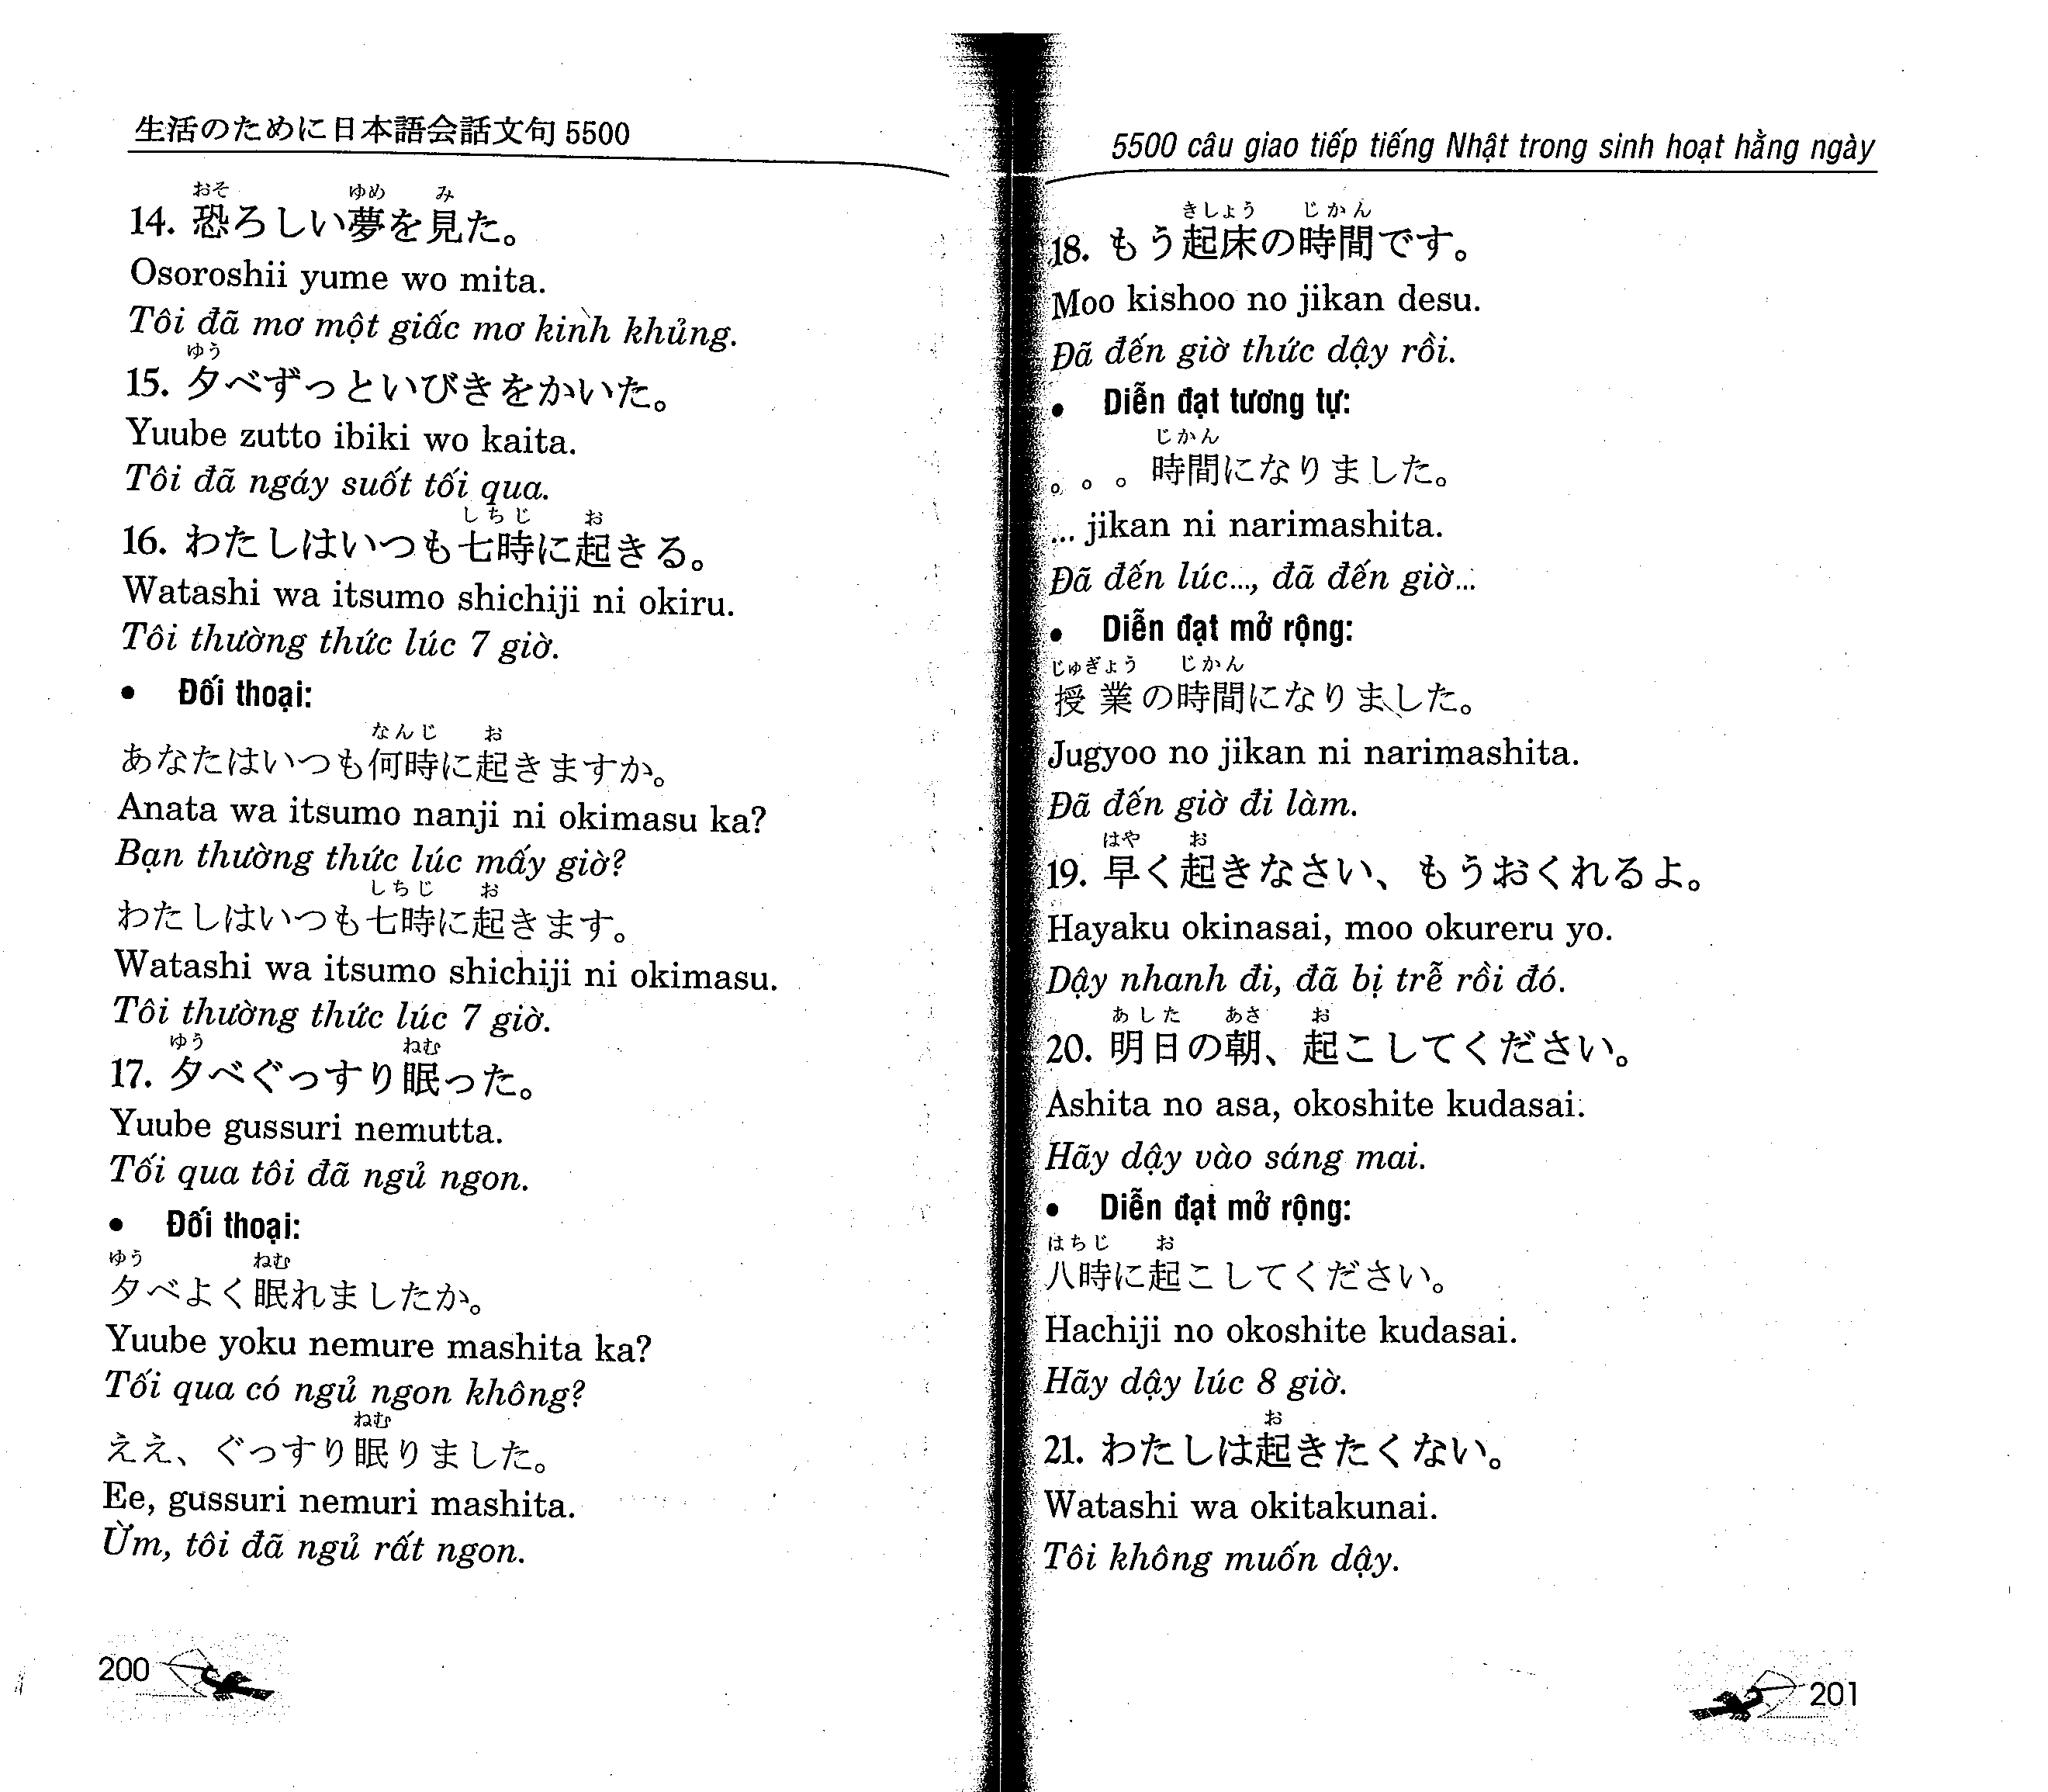 生活のために日本語会話文句 5500
おそ ゆめ み
14. 恐ろしい夢を見た。
Osoroshii yume wo mita.
Tôi đã mơ một giấc mơ kinh khủng.
ゆう
15. 夕べずっといびきをかいた。
Yuube zutto ibiki wo kaita.
Tôi đã ngáy suốt tối qua.
しちじ お
16. わたしはいつも七時に起きる。
Watashi wa itsumo shichiji ni okiru.
Tôi thường thức lúc 7 giờ.
• Đối thoại:
なんじ お
あなたはいつも何時に起きますか。
Anata wa itsumo nanji ni okimasu ka?
Bạn thường thức lúc mấy giờ?
しちじ お
わたしはいつも七時に起きます。
Watashi wa itsumo shichiji ni okimasu.
Tôi thường thức lúc 7 giờ.
ゆう ねむ
17. 夕べぐっすり眠った。
Yuube gussuri nemutta.
Tối qua tôi đã ngủ ngon.
• Đối thoại:
ゆう ねむ
夕べよく眠れましたか。
Yuube yoku nemure mashita ka?
Tối qua có ngủ ngon không?
ねむ
ええ、ぐっすり眠りました。
Ee, gussuri nemuri mashita.
Ừm, tôi đã ngủ rất ngon.
200
5500 câu giao tiếp tiếng Nhật trong sinh hoạt hằng ngày
きしょう じかん
18. もう起床の時間です。
Moo kishoo no jikan desu.
Đã đến giờ thức dậy rồi.
• Diễn đạt tương tự:
じかん
。。。時間になりました。
... jikan ni narimashita.
Đã đến lúc..., đã đến giờ...
• Diễn đạt mở rộng:
じゅぎょう じかん
授業の時間になりました。
Jugyoo no jikan ni narimashita.
Đã đến giờ đi làm.
はや お
19. 早く起きなさい、もうおくれるよ。
Hayaku okinasai, moo okureru yo.
Dậy nhanh đi, đã bị trễ rồi đó.
あした あさ お
20. 明日の朝、起こしてください。
Ashita no asa, okoshite kudasai.
Hãy dậy vào sáng mai.
• Diễn đạt mở rộng:
はちじ お
八時に起こしてください。
Hachiji no okoshite kudasai.
Hãy dậy lúc 8 giờ.
お
21. わたしは起きたくない。
Watashi wa okitakunai.
Tôi không muốn dậy.
201